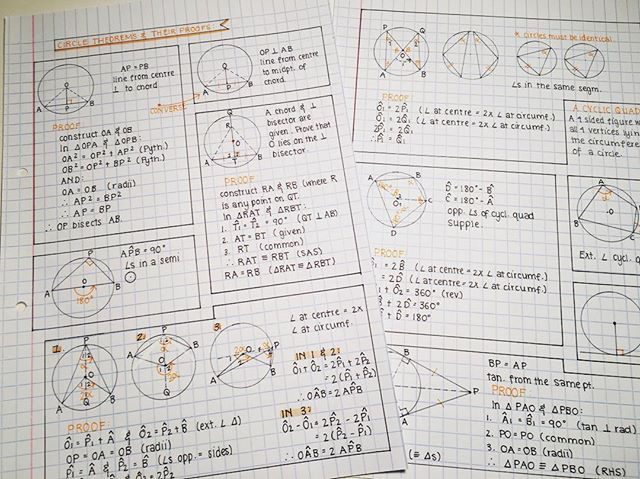 CIRCLE THEOREMS & THEIR PROOFS:
AP = PB
line from centre
⊥ to chord
O
A
P
B
CONVERSE
PROOF
construct OA & OB
In △OPA & △OPB:
OA² = OP² + AP² (Pyth.)
OB² = OP² + BP² (Pyth.)
AND:
OA = OB (radii)
∴ AP² = BP²
∴ AP = BP
∴ OP bisects AB.
OP ⊥ AB
line from centre
to midpt. of
chord.
O
A
P
B
A chord & ⊥
bisector are
given. Prove that
O lies on the ⊥
bisector.
Q
R
O
A
T
B
PROOF
construct RA & RB (where R
is any point on QT.
In △RAT & △RBT:
1. T̂₁ = T̂₂ = 90° (QT ⊥ AB)
2. AT = BT (given)
3. RT (common)
∴ RAT ≡ RBT (SAS)
RA = RB (△RAT ≡ △RBT)
AP̂B = 90°
∠s in a semi
P
A
O
B
180°
∠ at centre = 2x
∠ at circumf.
1.
2.
3.
IN 1 & 2:
Ô₁ + Ô₂ = 2P̂₁ + 2P̂₂
= 2(P̂₁ + P̂₂)
∴ OÂB = 2 AP̂B
IN 3:
Ô₂ - Ô₁ = 2P̂₂ - 2P̂₁
= 2(P̂₂ - P̂₁)
∴ OÂB = 2 AP̂B
PROOF:
Ô₁ = P̂₁ + Â & Ô₂ = P̂₂ + B̂ (ext. ∠ △)
OP = OA = OB (radii)
P̂₁ = Â & P̂₂ = B̂ (∠s opp. = sides)
P
Q
A
B
* circles must be identical.
∠s in the same segm.
PROOF:
Ô₁ = 2P̂₁ (∠ at centre = 2x ∠ at circumf.)
Ô₁ = 2Q̂₁ (∠ at centre = 2x ∠ at circumf.)
2P̂₁ = 2Q̂₁
∴ P̂₁ = Q̂₁
A CYCLIC QUAD
A 4 sided figure w
all 4 vertices
the circumferen
of a circle.
D̂ = 180° - B̂
Ĉ = 180° - Â
opp. ∠s of cycl. quad
supple.
PROOF:
Ô₁ = 2B̂ (∠ at centre = 2x ∠ at circumf.)
= 2D̂ (∠ at centre = 2x ∠ at circumf.)
Ô₁ + Ô₂ = 360° (rev.)
B̂ + 2D̂ = 360°
+ D̂ = 180°
Ext. ∠ cycl.
BP = AP
tan. from the same pt.
PROOF
In △PAO & △PBO:
1. Â₁ = B̂₁ = 90° (tan ⊥ rad)
2. PO = PO (common)
3. OA = OB (radii)
∴ △PAO ≡ △PBO (RHS)
P
A
(≡ △s)